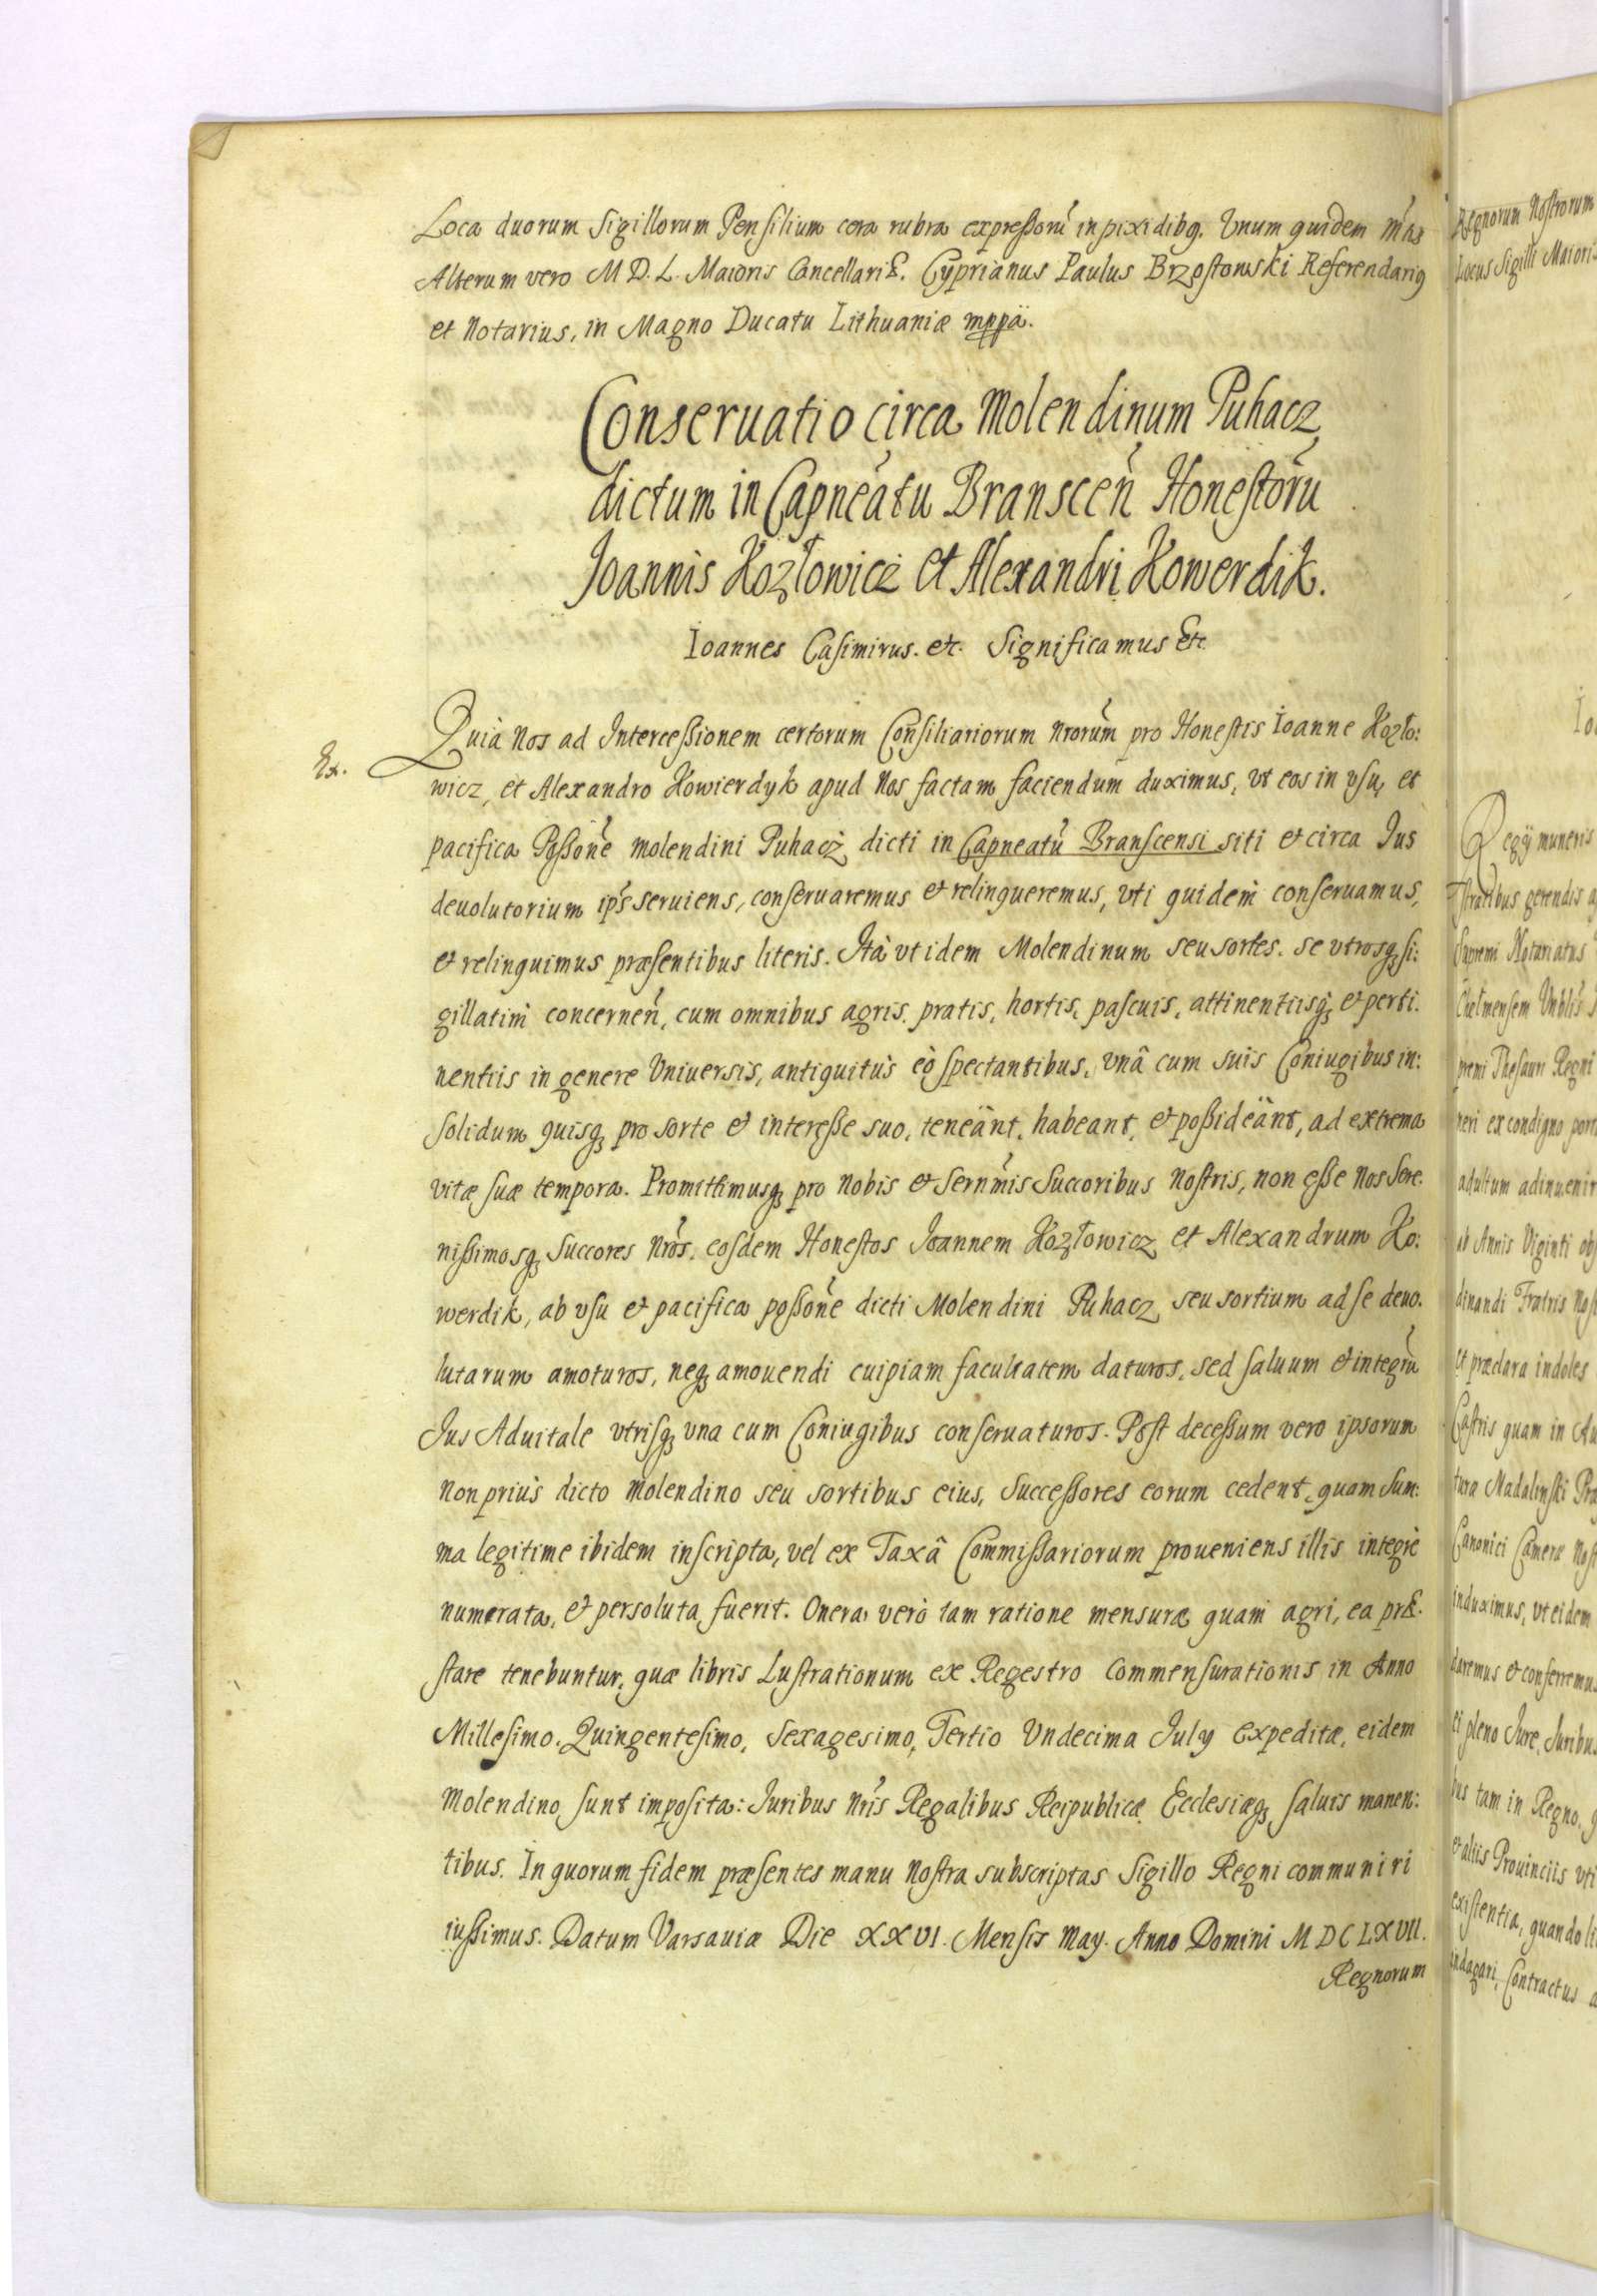 Loca duorum Sigillorum Pensilium cera rubra expressorũ in pixidibq. Vnum quidem
Alterum vero M D. L. Maioris Cancellariæ. Cyprianus Paulus Brzostowski Referendariq
et Notarius, in Magno Ducatu Lithuaniæ mppã.
Conseruatio circa Molendinum Puhacz
dictum in Capneãtu Branscen̄ Honestorũ
Joannis Kozłowicż et Alexandri Kowerdik.
Ioannes Casimirus. etc. Significamus Etc.
Ex.
Quià Nos ad Intercessionem certorum Consiliariorum Nrorũm pro Honestis Ioanne Kozło:
wicz, et Alexandro Kowierdyk apud Nos factam faciendum duximus, vt eos in vsu, et
pacifica Possõne molendini Puhacż dicti in Capneatũ Branscensi siti et circa Ius
deuolutorium ip̃s seruiens, conseruaremus et relinqueremus, vti quidem̀ conseruamus,
et relinquimus præsentibus literis. Ità vt idem Molendinum seu sortes. se vtrosq si:
gillatim̀ concernen̄, cum omnibus agris. pratis, hortis, pascuis, attinentiisq, et perti.
nentiis in genere Vniuersis, antiquitùs eò spectantibus, vnâ cum suis Coniugibus in:
solidum quisq pro sorte et interesse suo, teneãnt, habeant, et possideãnt, ad extrema
vitæ suæ tempora. Promittimusq pro Nobis et Sern̄mis Succoribus Nostris, non esse Nos Sere.
nissimosq Succores Nrõs. eosdem Honestos Joannem Kozłowicz et Alexandrum Ko:
werdik, ab vsu et pacifica possõne dicti Molendini Puhacz seu sortium ad se deuo.
lutarum amoturos, neq amouendi cuipiam facultatem daturos, sed saluum et integrũ
Jus Aduitale vtrisq vna cum Coniugibus conseruaturos. Post decessum vero ipsorum
Non priùs dicto Molendino seu sortibus eius, Successores eorum cedent, quam sum:
ma legitime ibidem inscripta, vel ex Taxâ Commissariorum proueniens illis integrè
numerata, et persoluta fuerit. Onera verò tam ratione mensuræ quam agri, ea præ.
stare tenebuntur, quæ libris Lustrationum ex Regestro Commensurationis in Anno
Millesimo. Quingentesimo, Sexagesimo, Tertio Vndecima July Expeditæ, eidem
Molendino sunt imposita: Iuribus Nrĩs Regalibus Reipublicæ Ecclesiæq saluis manen:
tibus. In quorum fidem præsentes manu Nostra subscriptas Sigillo Regni communiri
iussimus. Datum Varsauiæ Die XXVI. Mensis May. Anno Domini M DC LXVII.
Regnorum
Regnorum Nostrorum
Locus Sigilli Maioris
Regÿ muneris
Supremi Notariatus
premi Thesauri Regni
neri ex condigno
ab Annis Viginti
dinandi Fratris
et præclara indoles
Castris quam in
tura Madalinski
Canonici Cameræ
induximus, vt eidem
daremus et conferremus
ei pleno Iure, Iuribus
bus tam in Regno,
et aliis Prouinciis vti
existentia, quando
indagari, Contractus